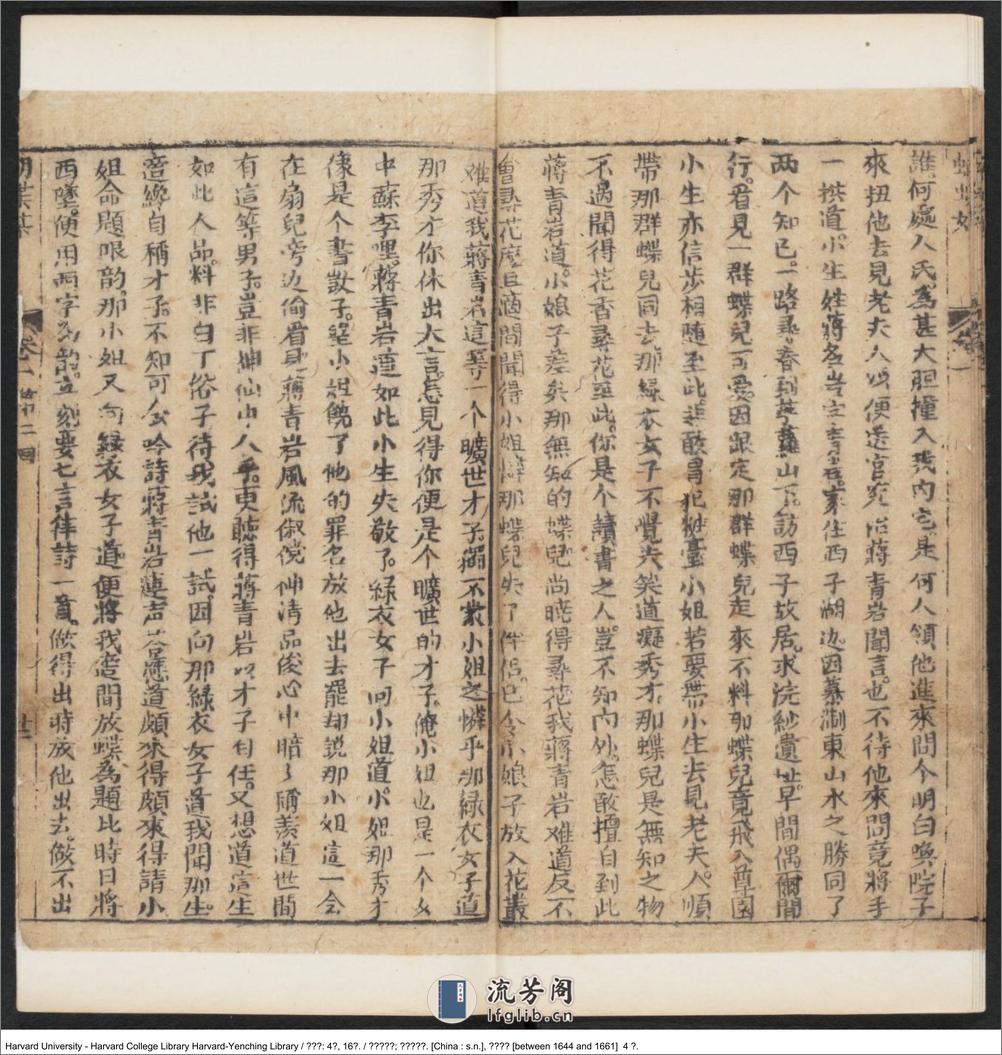 誰何處人氏為甚大胆撞入我内宅是何人領他進來問个明白喚院子
來扭他去見老夫人以便送官究治蔣青岩聞言也不待他來問竟將手
一拱道小生姓蔣名岩字青岩家住西子湖边因慕浙東山水之勝同了
两个知已一路尋春到苧蘿山下訪西子故居求浣紗遺址早間偶爾閒
行看見一群蝶兒可愛因跟定那群蝶兒走來不料那蝶兒竟飛入尊園
小生亦信步相随至此非敢冒犯粧臺小姐若要帶小生去見老夫人順
帶那群蝶兒同去那緑衣女子不覺失笑道癡秀才那蝶兒是無知之物
不過聞得花香尋花至此你是个讀書之人豈不知内外怎敢擅自到此
蔣青岩道小娘子差矣那無知的蝶兒尚曉得尋花我蔣青岩难道反不
會尋花麽且適間聞得小姐憐那蝶兒失了伴侣已令小娘子放入花叢
难道我蔣青岩這等一个曠世才子獨不蒙小姐之憐乎那緑衣女子道
那秀才你休出大言怎見得你便是个曠世的才子俺小姐也是一个女
中蘇李哩蔣青岩道如此小生失敬了緑衣女子回小姐道小姐那秀才
像是个書獃子望小姐饒了他的罪名放他出去罷却説那小姐這一会
在扇兒旁边偷看見蔣青岩風流俶儻神清品俊心中暗々稱羨道世間
有這等男子豈非神仙中人乎更聽得蔣青岩以才子自任又想道這生
如此人品料非白丁俗子待我試他一試因向那緑衣女子道我聞那生
適纔自稱才子不知可会吟詩蔣青岩連声荅應道頗來得頗來得請小
姐命題限韵那小姐又向緑衣女子道便將我適間放蝶為題比時日將
西墜便用西字為韵立刻要七言律詩一首做得出時放他出去做不出
卷一 第二回
流芳阁
lfglib.cn
Harvard University - Harvard College Library Harvard-Yenching Library / ???: 4?, 16?. / ?????; ?????. [China : s.n.], ???? [between 1644 and 1661] 4 ?.